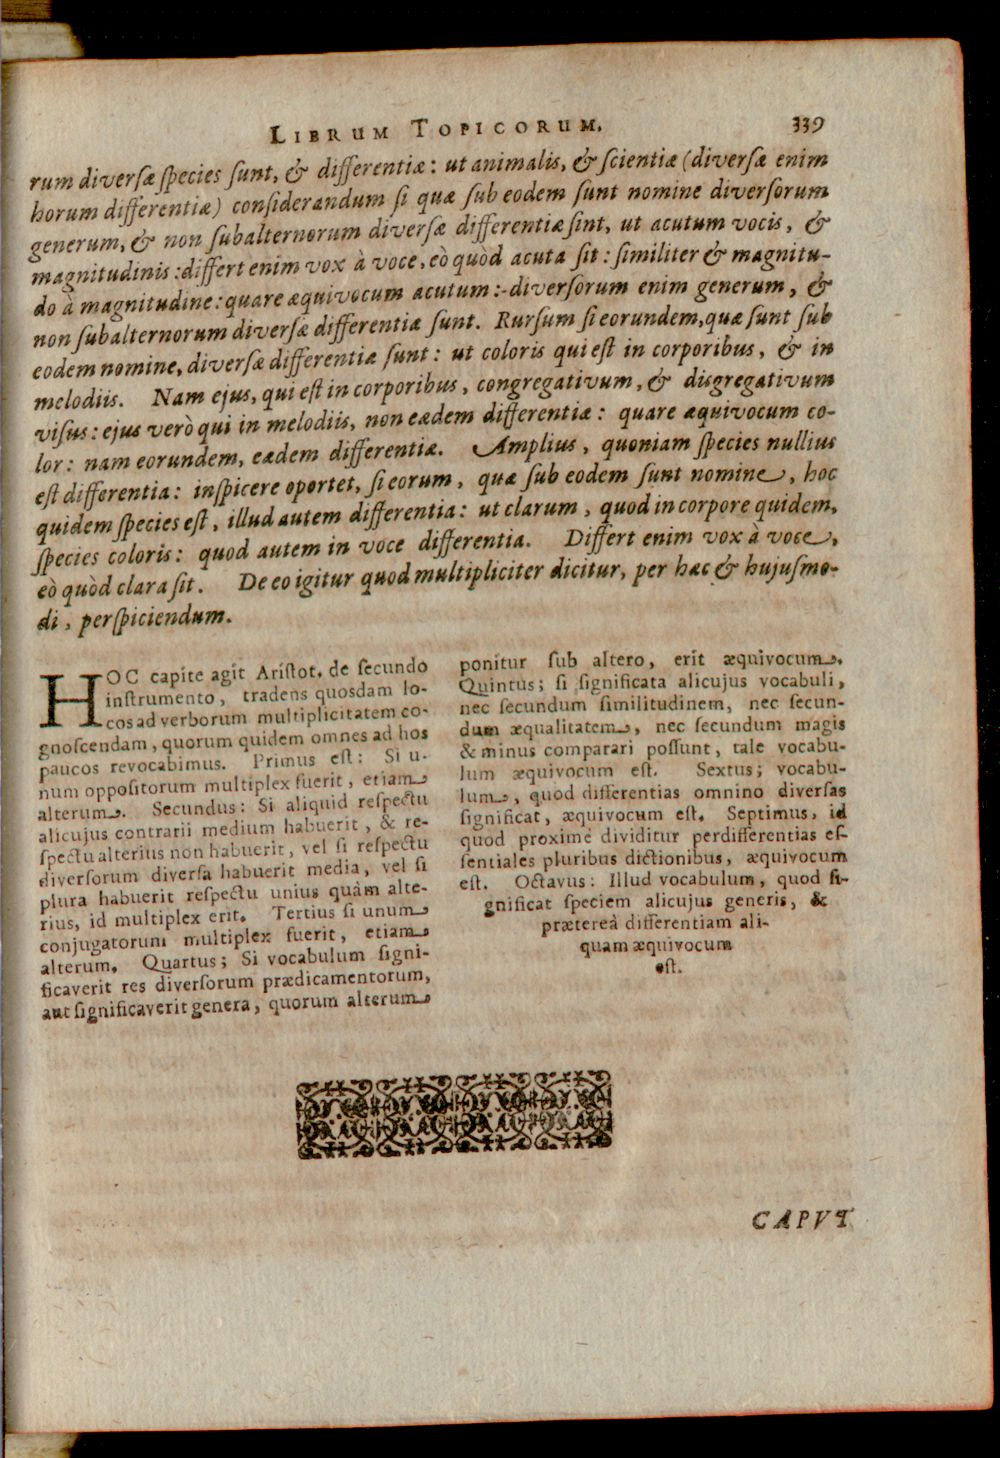 LIBRUM TOPICORUM. 339
rum diversæ species sunt, & differentiæ: ut animalis, & scientiæ (diversæ enim
horum differentiæ) considerandum si quæ sub eodem sunt nomine diversorum
generum, & non subalternorum diversæ differentiæ sint, ut acutum vocis, &
magnitudinis: differt enim vox à voce, eò quòd acuta sit: similiter & magnitu-
do à magnitudine: quare æquivocum acutum: diversorum enim generum, &
non subalternorum diversæ differentiæ sunt. Rursum si eorundem, quæ sunt sub
eodem nomine, diversæ differentiæ sunt: ut coloris qui est in corporibus, & in
melodiis. Nam ejus, qui est in corporibus, congregativum, & disgregativum
visus: ejus verò qui in melodiis, non eædem differentiæ: quare æquivocum co-
lor: nam eorundem, eædem differentiæ. Amplius, quoniam species nullius
est differentia: inspicere oportet, si eorum, quæ sub eodem sunt nomine, hoc
quidem species est, illud autem differentia: ut clarum, quod in corpore quidem,
species coloris: quod autem in voce differentia. Differt enim vox à voce,
eò quòd clara sit. De eo igitur quod multipliciter dicitur, per hæc & hujusmo-
di, perspiciendum.
HOC capite agit Aristot. de secundo
instrumento, tradens quosdam lo-
cos ad verborum multiplicitatem co-
gnoscendam, quorum quidem omnes ad hos
paucos revocabimus. Primus est: Si u-
num oppositorum multiplex fuerit, etiam
alterum. Secundus: Si aliquid respectu
alicujus contrarii medium habuerit, & re-
spectu alterius non habuerit, vel si respectu
diversorum diversa habuerit media, vel si
plura habuerit respectu unius quàm alte-
rius, id multiplex erit. Tertius si unum
conjugatorum multiplex fuerit, etiam
alterum. Quartus; Si vocabulum signi-
ficaverit res diversorum prædicamentorum,
aut significaverit genera, quorum alterum
ponitur sub altero, erit æquivocum.
Quintus; si significata alicujus vocabuli,
nec secundum similitudinem, nec secun-
dum æqualitatem, nec secundum magis
& minus comparari possunt, tale vocabu-
lum æquivocum est. Sextus; vocabu-
lum, quod differentias omnino diversas
significat, æquivocum est. Septimus, id
quod proximè dividitur per differentias es-
sentiales pluribus dictionibus, æquivocum
est. Octavus: Illud vocabulum, quod si-
gnificat speciem alicujus generis, &
prætereà differentiam ali-
quam æquivocum
est.
CAPVT